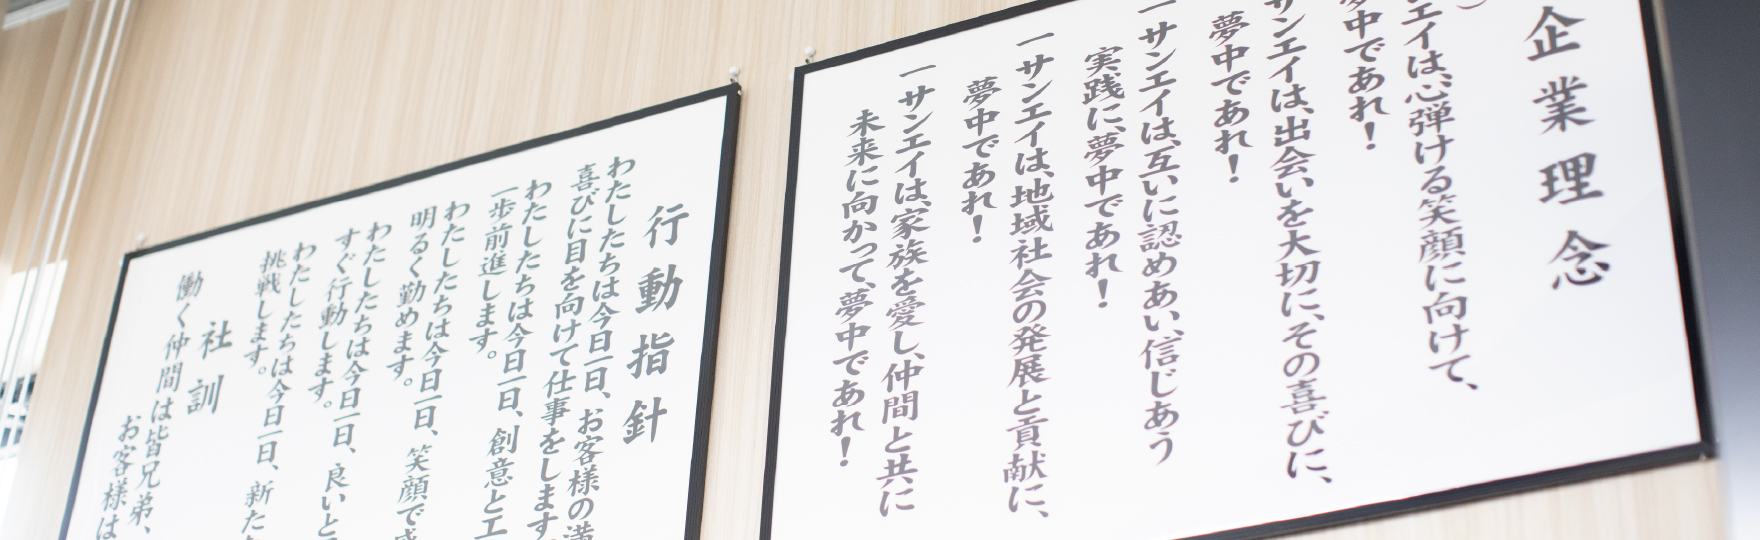 企業理念
エイは、心弾ける笑顔に向けて、
夢中であれ！
サンエイは、出会いを大切に、その喜びに、
夢中であれ！
一サンエイは、互いに認めあい、信じあう
実践に、夢中であれ！
一サンエイは、地域社会の発展と貢献に、
夢中であれ！
一サンエイは、家族を愛し、仲間と共に
未来に向かって、夢中であれ！
行動指針
わたしたちは今日一日、お客様の満
喜びに目を向けて仕事をします
わたしたちは今日一日、創意と工
一歩前進します。
わたしたちは今日一日、笑顔で
明るく勤めます。
わたしたちは今日一日、良いと
すぐ行動します。
わたしたちは今日一日、新た
挑戦します。
社訓
働く仲間は皆兄弟、
お客様は